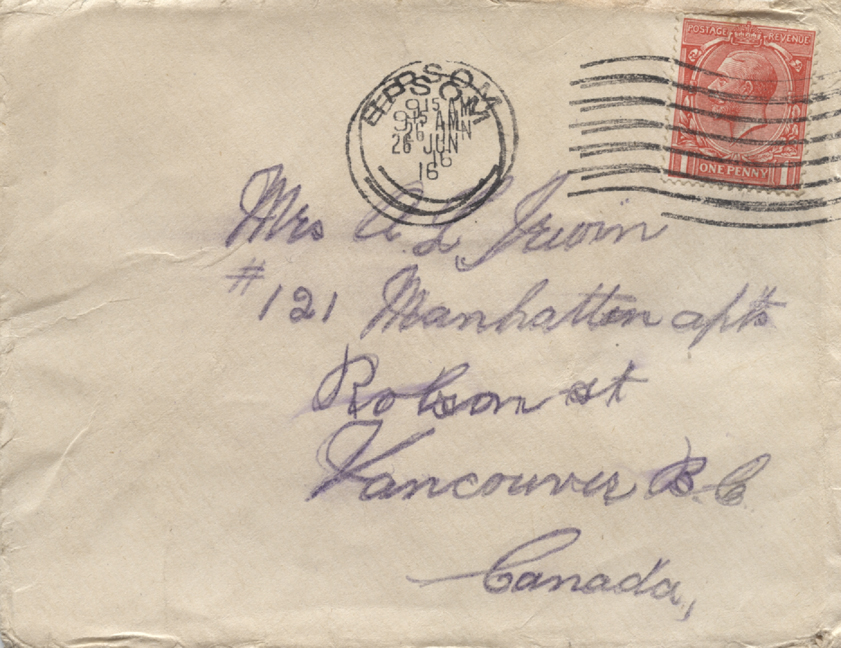 POSTAGE REVENUE
ONE PENNY
EPSOM
9 15 AM
26 JUN
16
Mrs A. L. Irwin
#121 Manhattan apts
Robson st
Vancouver B.C
Canada,